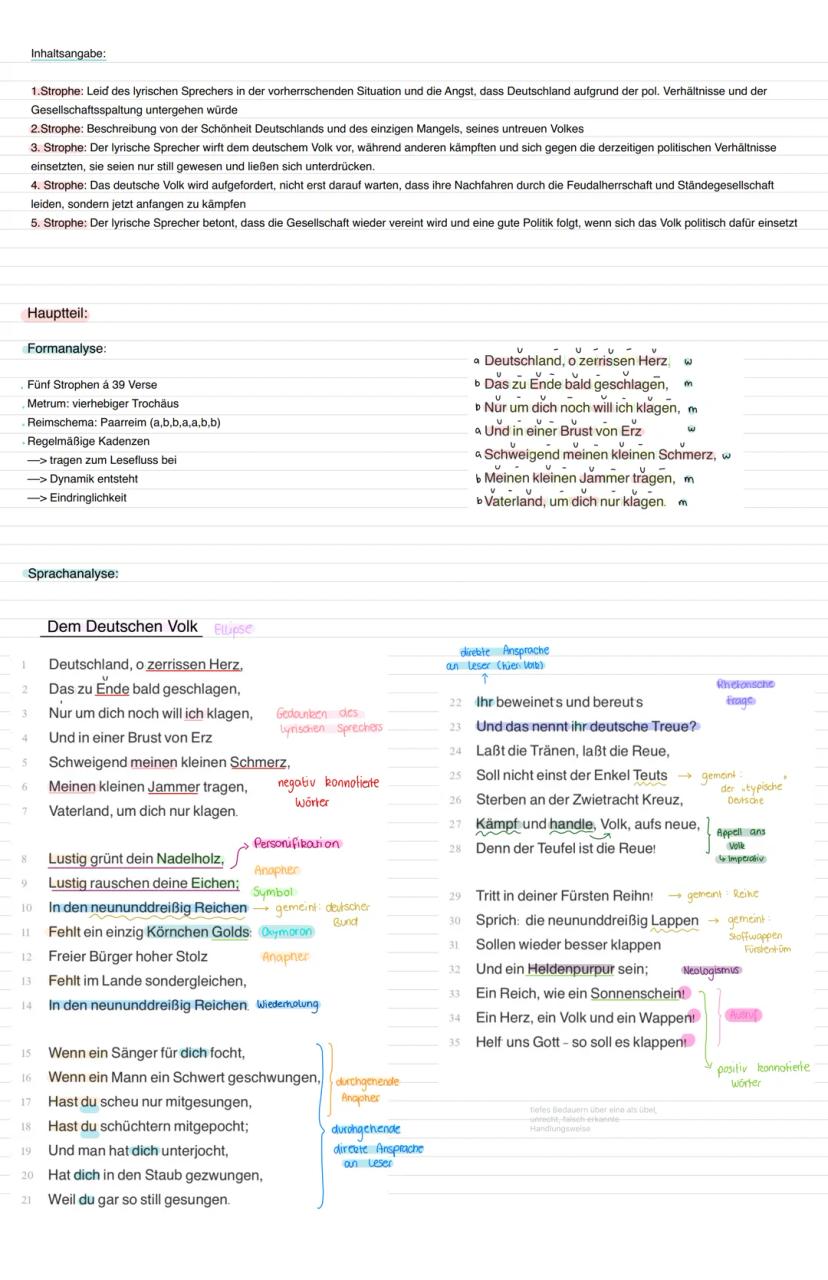 Inhaltsangabe:
1.Strophe: Leid des lyrischen Sprechers in der vorherrschenden Situation und die Angst, dass Deutschland aufgrund der pol. Verhältnisse und der
Gesellschaftsspaltung untergehen würde
2.Strophe: Beschreibung von der Schönheit Deutschlands und des einzigen Mangels, seines untreuen Volkes
3. Strophe: Der lyrische Sprecher wirft dem deutschem Volk vor, während anderen kämpften und sich gegen die derzeitigen politischen Verhältnisse
einsetzten, sie seien nur still gewesen und ließen sich unterdrücken.
4. Strophe: Das deutsche Volk wird aufgefordert, nicht erst darauf warten, dass ihre Nachfahren durch die Feudalherrschaft und Ständegesellschaft
leiden, sondern jetzt anfangen zu kämpfen
5. Strophe: Der lyrische Sprecher betont, dass die Gesellschaft wieder vereint wird und eine gute Politik folgt, wenn sich das Volk politisch dafür einsetzt
Hauptteil:
Formanalyse:
. Fünf Strophen á 39 Verse
. Metrum: vierhebiger Trochäus
. Reimschema: Paarreim (a,b,b,a,a,b,b)
. Regelmäßige Kadenzen
—> tragen zum Lesefluss bei
—> Dynamik entsteht
—> Eindringlichkeit
a Deutschland, o zerrissen Herz, w
b Das zu Ende bald geschlagen, m
b Nur um dich noch will ich klagen, m
a Und in einer Brust von Erz w
a Schweigend meinen kleinen Schmerz, w
b Meinen kleinen Jammer tragen, m
b Vaterland, um dich nur klagen. m
Sprachanalyse:
Dem Deutschen Volk Ellipse
1 Deutschland, o zerrissen Herz,
2 Das zu Ende bald geschlagen,
3 Nur um dich noch will ich klagen,
Gedanken des
lyrischen Sprechers
4 Und in einer Brust von Erz
5 Schweigend meinen kleinen Schmerz,
6 Meinen kleinen Jammer tragen,
negativ konnotierte
Wörter
7 Vaterland, um dich nur klagen.
Personifikation
8 Lustig grünt dein Nadelholz,
Anapher
9 Lustig rauschen deine Eichen;
Symbol
10 In den neununddreißig Reichen → gemeint: deutscher
Bund
11 Fehlt ein einzig Körnchen Golds: Oxymoron
12 Freier Bürger hoher Stolz Anapher
13 Fehlt im Lande sondergleichen,
14 In den neununddreißig Reichen. Wiederholung
15 Wenn ein Sänger für dich focht,
16 Wenn ein Mann ein Schwert geschwungen,
17 Hast du scheu nur mitgesungen,
durchgehende
Anapher
18 Hast du schüchtern mitgepocht;
19 Und man hat dich unterjocht,
20 Hat dich in den Staub gezwungen,
21 Weil du gar so still gesungen.
durchgehende
direkte Ansprache
an Leser
direkte Ansprache
an Leser (hier: Volk)
↑
Rhetorische
Frage
22 Ihr beweinet s und bereut s
23 Und das nennt ihr deutsche Treue?
24 Laßt die Tränen, laßt die Reue,
25 Soll nicht einst der Enkel Teuts → gemeint:
der „typische"
Deutsche
26 Sterben an der Zwietracht Kreuz,
27 Kämpf und handle, Volk, aufs neue,
28 Denn der Teufel ist die Reue!
Appell ans
Volk
↳ Imperativ
29 Tritt in deiner Fürsten Reihn! → gemeint: Reihe
30 Sprich: die neununddreißig Lappen → gemeint:
Stoffwappen
Fürstentüm
31 Sollen wieder besser klappen
32 Und ein Heldenpurpur sein; Neologismus
33 Ein Reich, wie ein Sonnenschein!
34 Ein Herz, ein Volk und ein Wappen! Ausruf
35 Helf uns Gott – so soll es klappen!
positiv konnotierte
Wörter
tiefes Bedauern über eine als übel,
unrecht, falsch erkannte
Handlungsweise